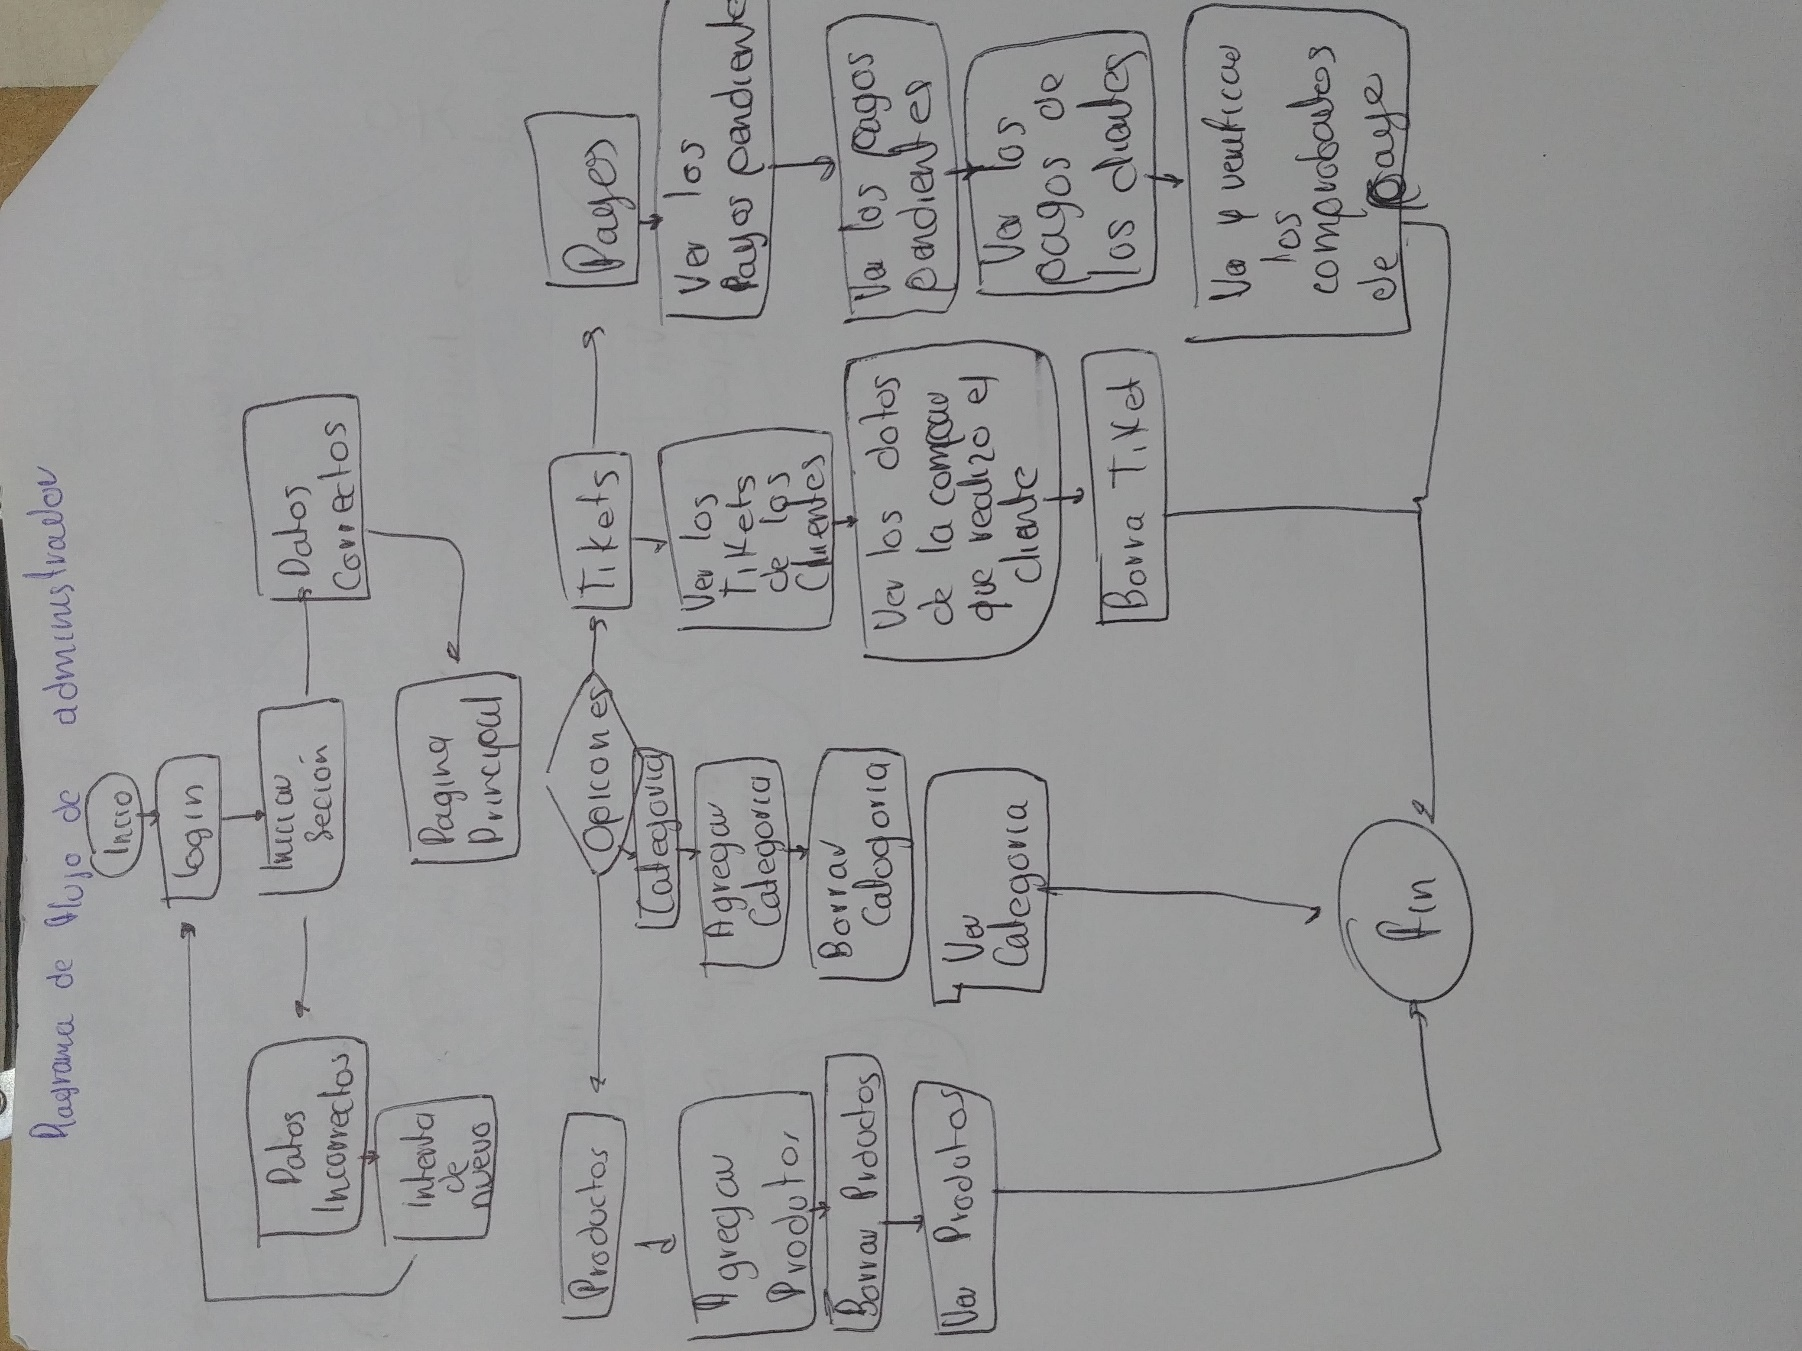 Diagrama de Flujo de administrador
Incio
Login
Iniciar
Seción
Datos
Correctos
Datos
Incorrectos
intenta
de
nuevo
Pagina
Principal
Opicones
Productos
Agregar
Produtos
Borrar Productos
Ver Produtos
Categoria
Agregar
Categoria
Borrar
Categoria
Ver
Categoria
Tikets
Ver los
Tikets
de los
Clientes
Ver los datos
de la compar
que realizo el
cliente
Borra Tiket
Pagos
Ver los
Pagos pendiente
Ver los pagos
pendientes
Ver los
pagos de
los clientes
Ver y verificar
los
comprobantes
de
Fin